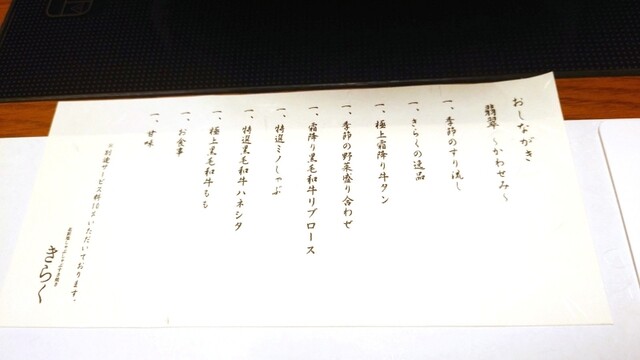 おしながき
翡翠 ～かわせみ～
一、季節のすり流し
一、きらくの逸品
一、極上霜降り牛タン
一、季節の野菜盛り合わせ
一、霜降り黒毛和牛リブロース
一、特選ミノしゃぶ
一、特選黒毛和牛ハネシタ
一、極上黒毛和牛もも
一、お食事
一、甘味
※別途サービス料10％いただいております。
きらく